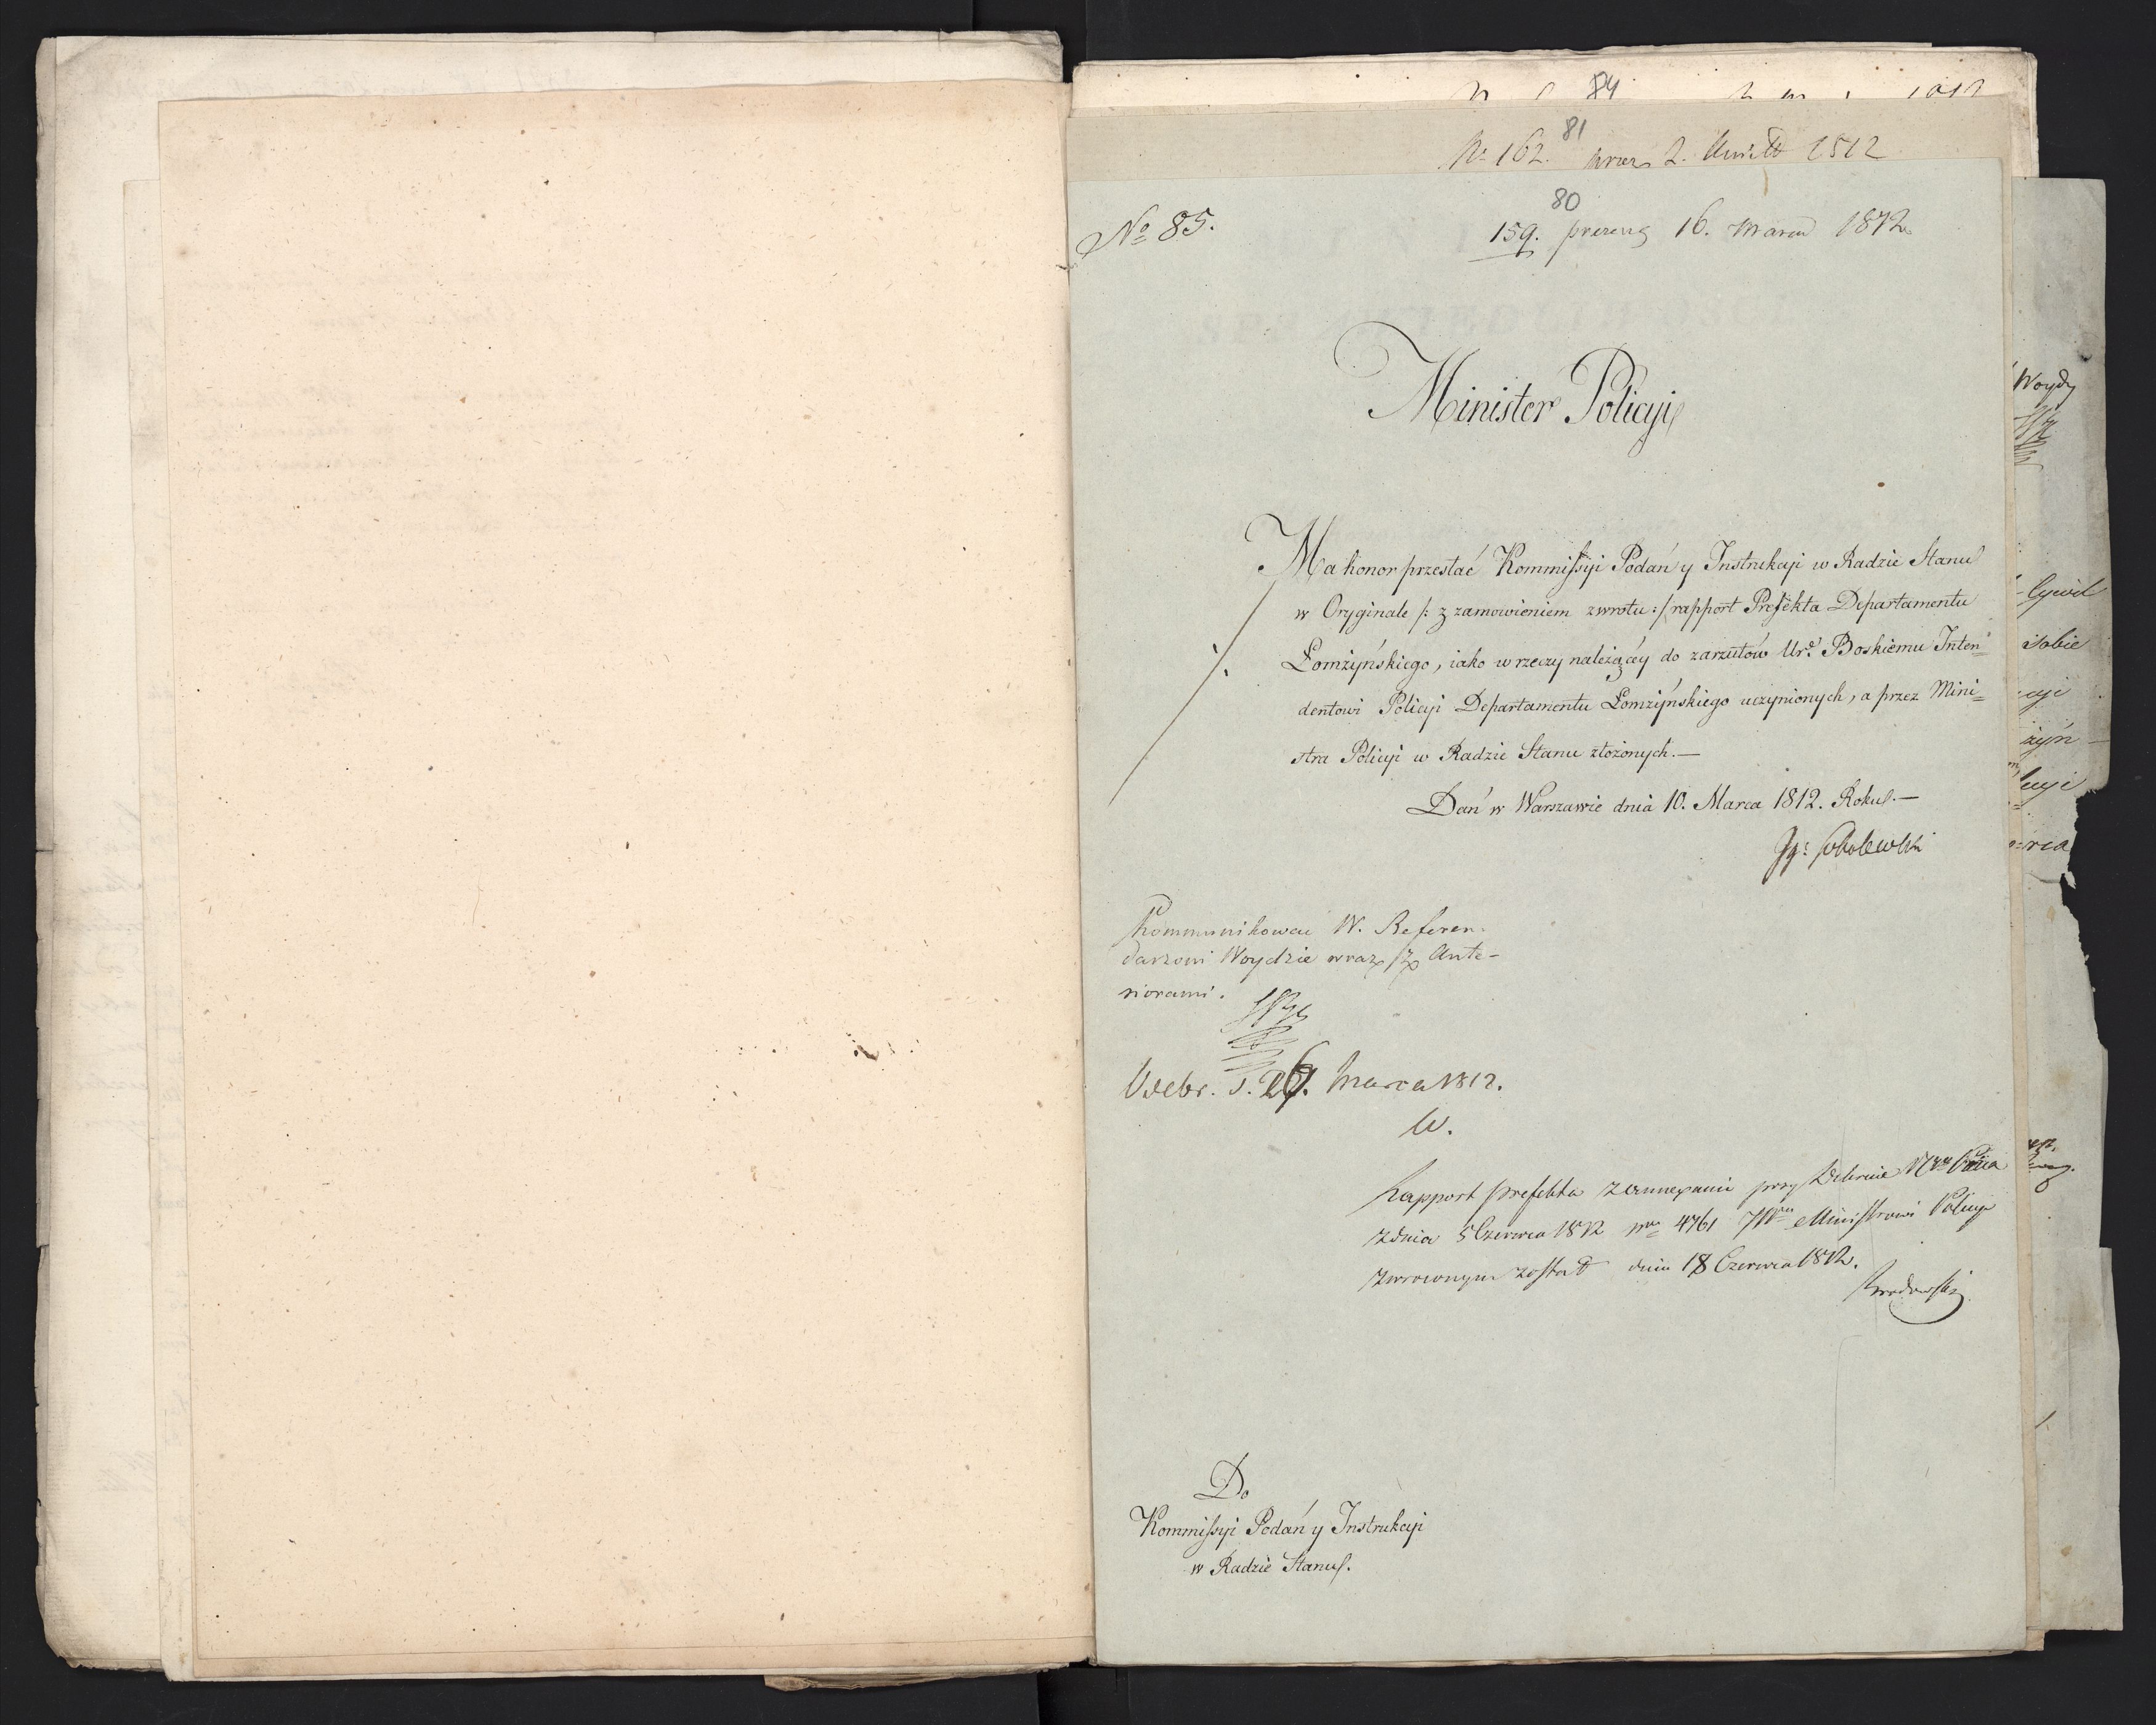 84
81
No 162. 1812
80
No 85.
159. prezens 16. Marca 1812
Minister Policyi
Ma honor przesłać Kommissyi Podań y Instrukcyi w Radzie Stanu
w Oryginale /: z zamowieniem zwrotu :/ rapport Prefekta Departamentu
Łomżyńskiego, iako w rzeczy należącéy do zarzutów Ur. Boskiemu Inten=
dentowi Policyi Departamentu Łomżyńskiego uczynionych, a przez Mini=
stra Policyi w Radzie Stanu złożonych.—
Dań w Warszawie dnia 10. Marca 1812. Roku.—
Ig: Sobolewski
Kommunikować W. Referen-
darzowi Woydzie wraz z Ante-
riorami.
Odebr. d. Marca 1812.
W.
Rapport Prefekta z annexami przy
z dnia 5 Czerwca 1812 nro 4761 JWmu Ministrowi Policyi
zwroconym został dnia 18 Czerwca 1812.
Do
Kommissyi Podań y Instrukcyi
w Radzie Stanu.
Woydy
Cywil
sobie
cyi
żyń